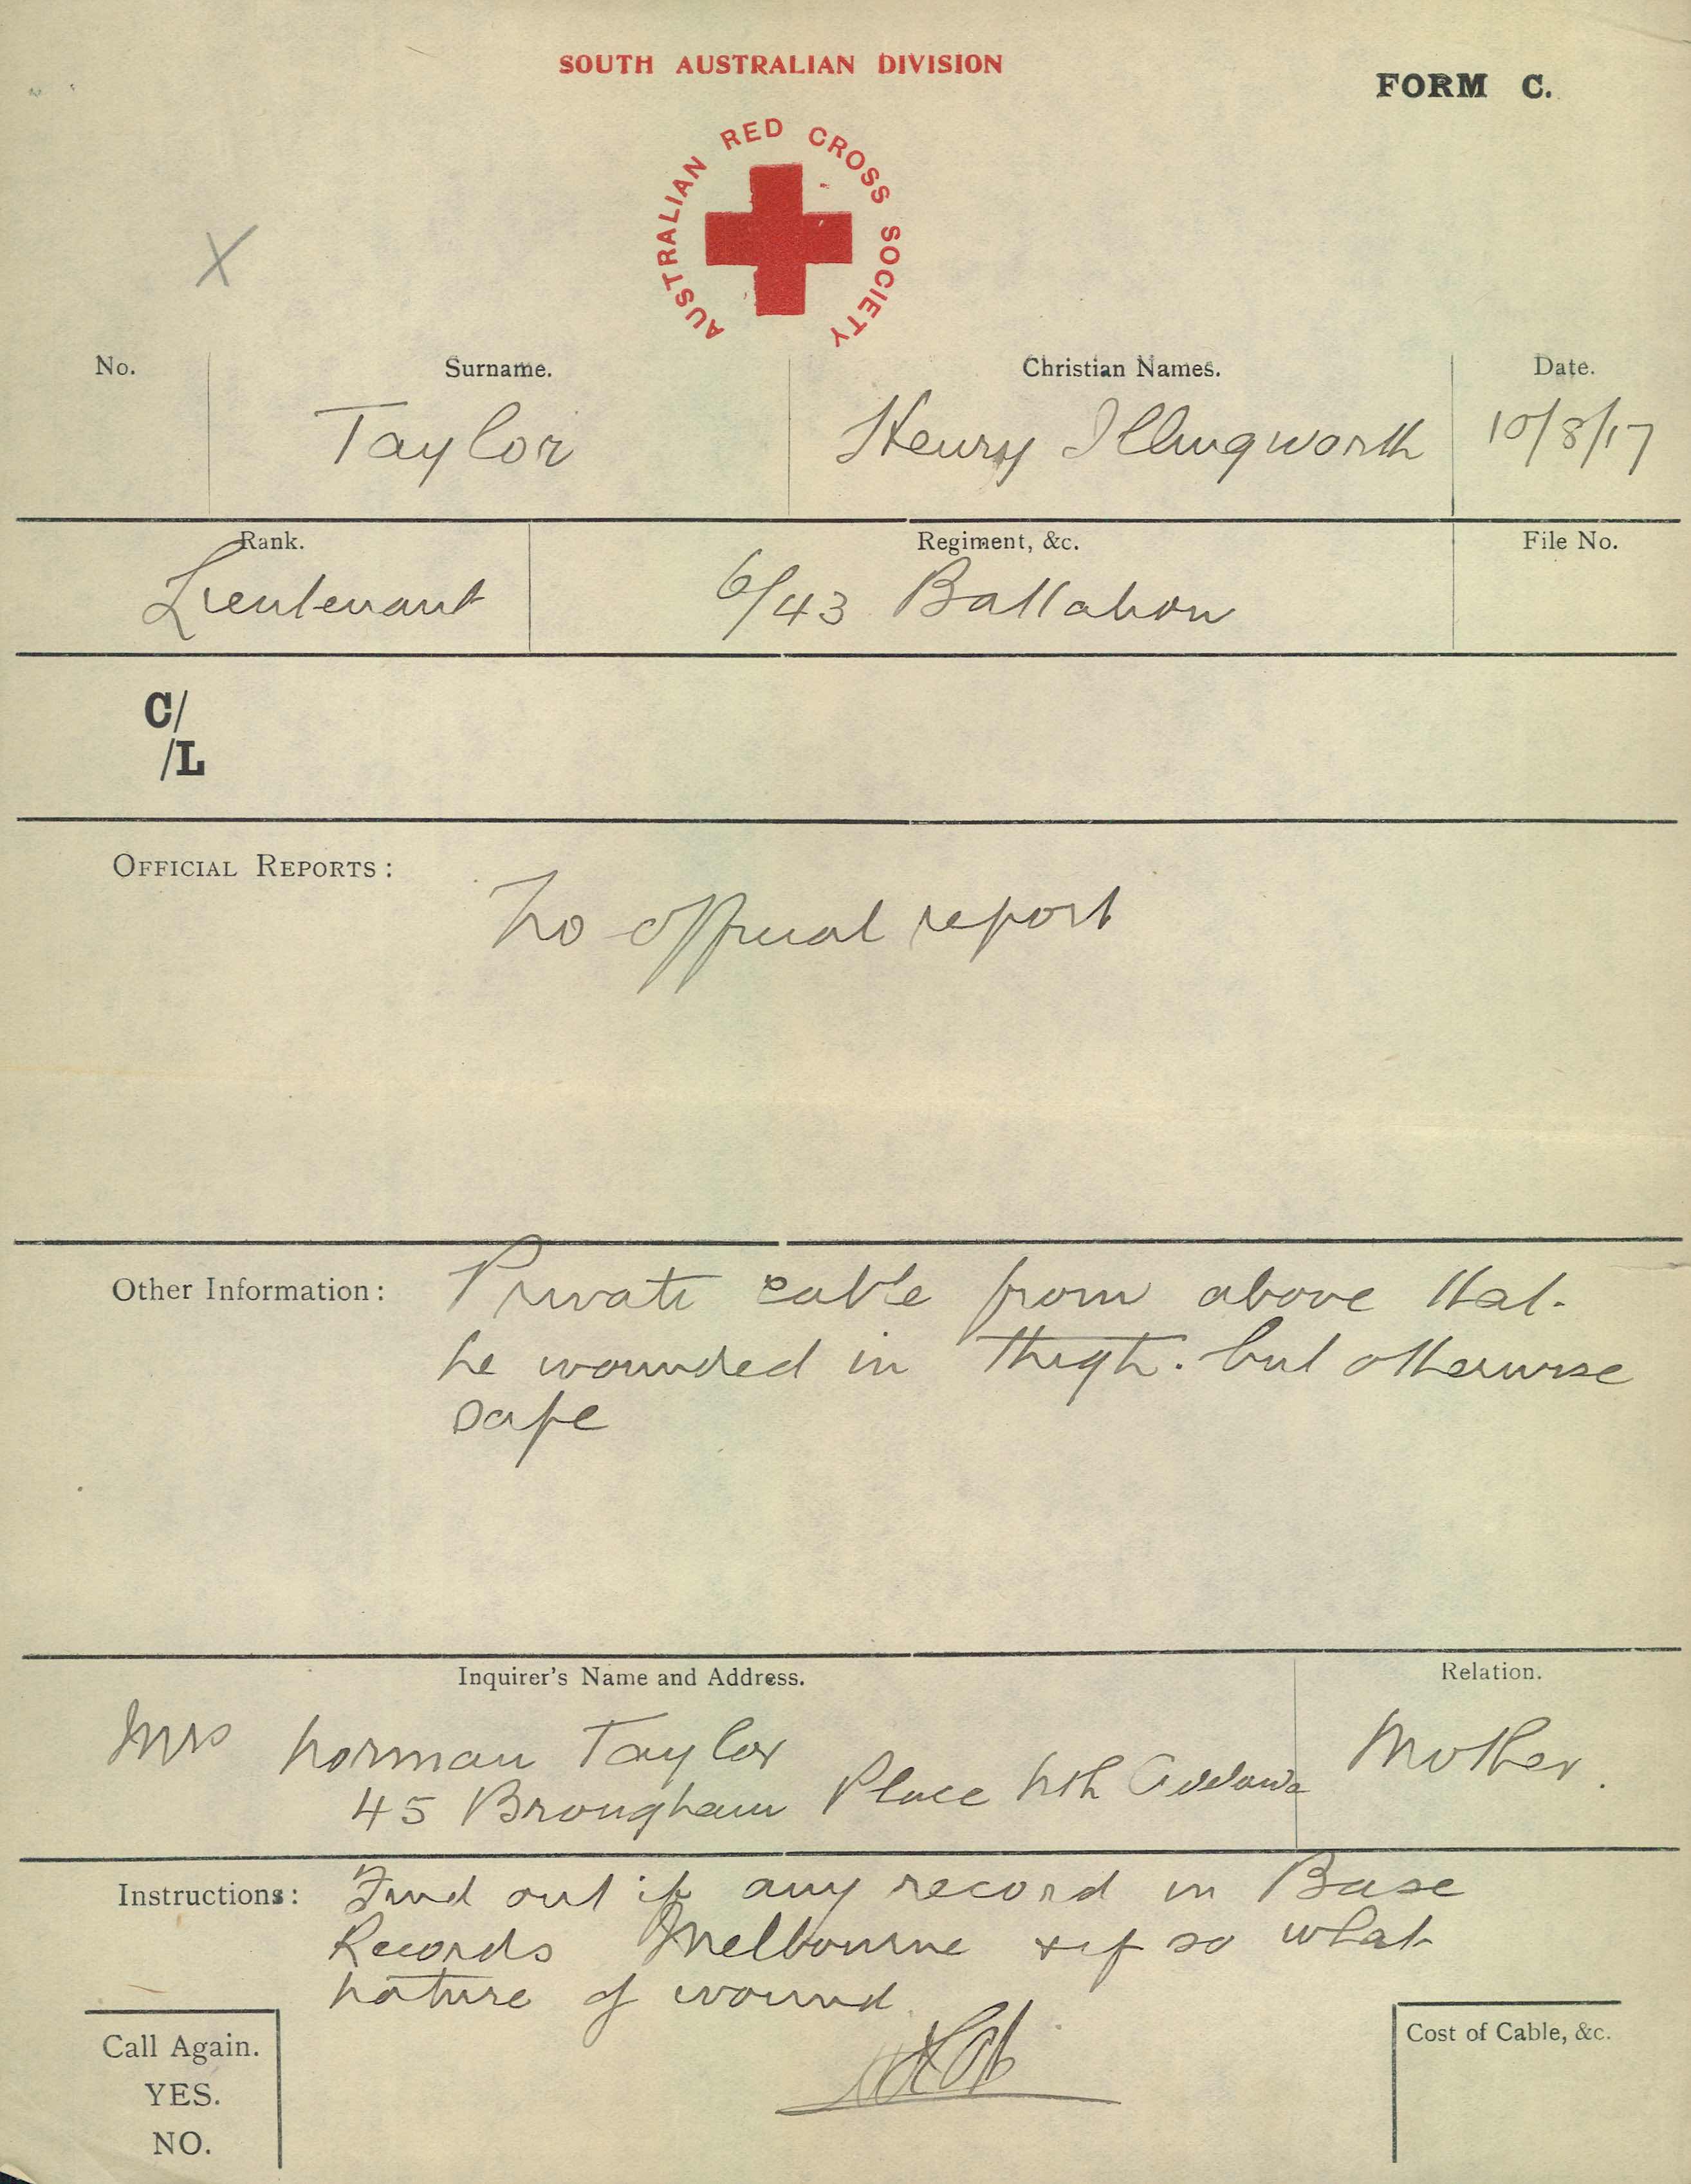 SOUTH AUSTRALIAN DIVISION
FORM C.
AUSTRALIAN RED CROSS SOCIETY
X
No. Surname. Christian Names. Date.
Taylor Henry Illingworth 10/8/17
Rank. Regiment, &c. File No.
Lieutenant 6/43 Battalion
C/
/L
OFFICIAL REPORTS:
No official report
Other Information: Private cable from above that
he wounded in thigh. but otherwise
safe
Inquirer's Name and Address. Relation.
Mrs Norman Taylor Mother.
45 Brougham Place Nth Adelaide
Instructions: Find out if any record in Base
Records Melbourne & if so what
nature of wound.
Call Again.
YES.
NO.
Cost of Cable, &c.